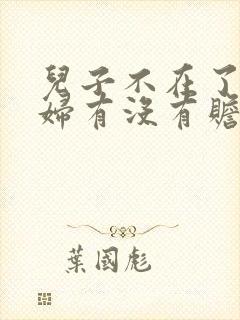 兒子不在了
婦有沒有贍
葉國彪